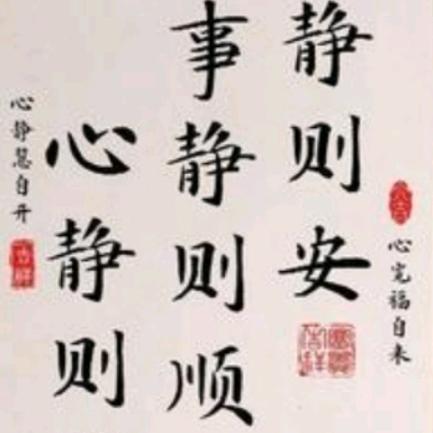 心宽福自来
静则安
事静则顺
心静则
心静慧自开
吉祥